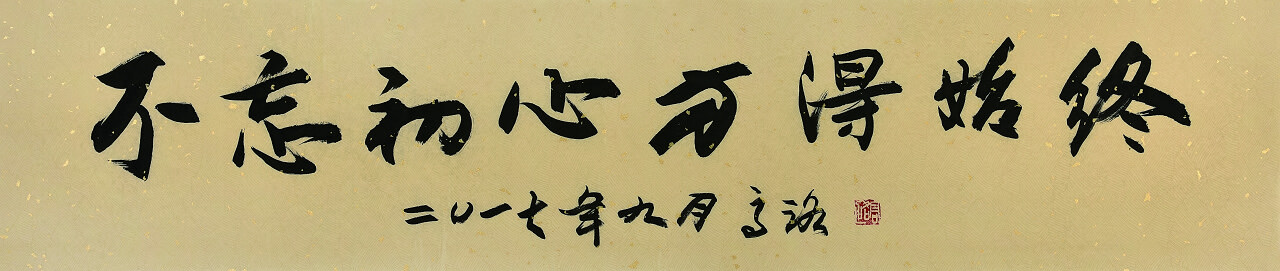 不忘初心方得始终
二〇一七年九月高